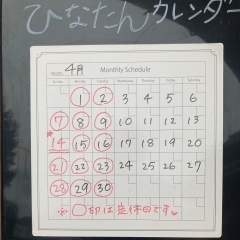 ひなたんカレンダー
MONTH 4月 Monthly Schedule
Sunday Monday Tuesday Wednesday Thursday Friday Saturday
1 2 3 4 5 6
7 8 9 10 11 12 13
14 15 16 17 18 19 20
21 22 23 24 25 26 27
28 29 30
※○印は定休日です♥